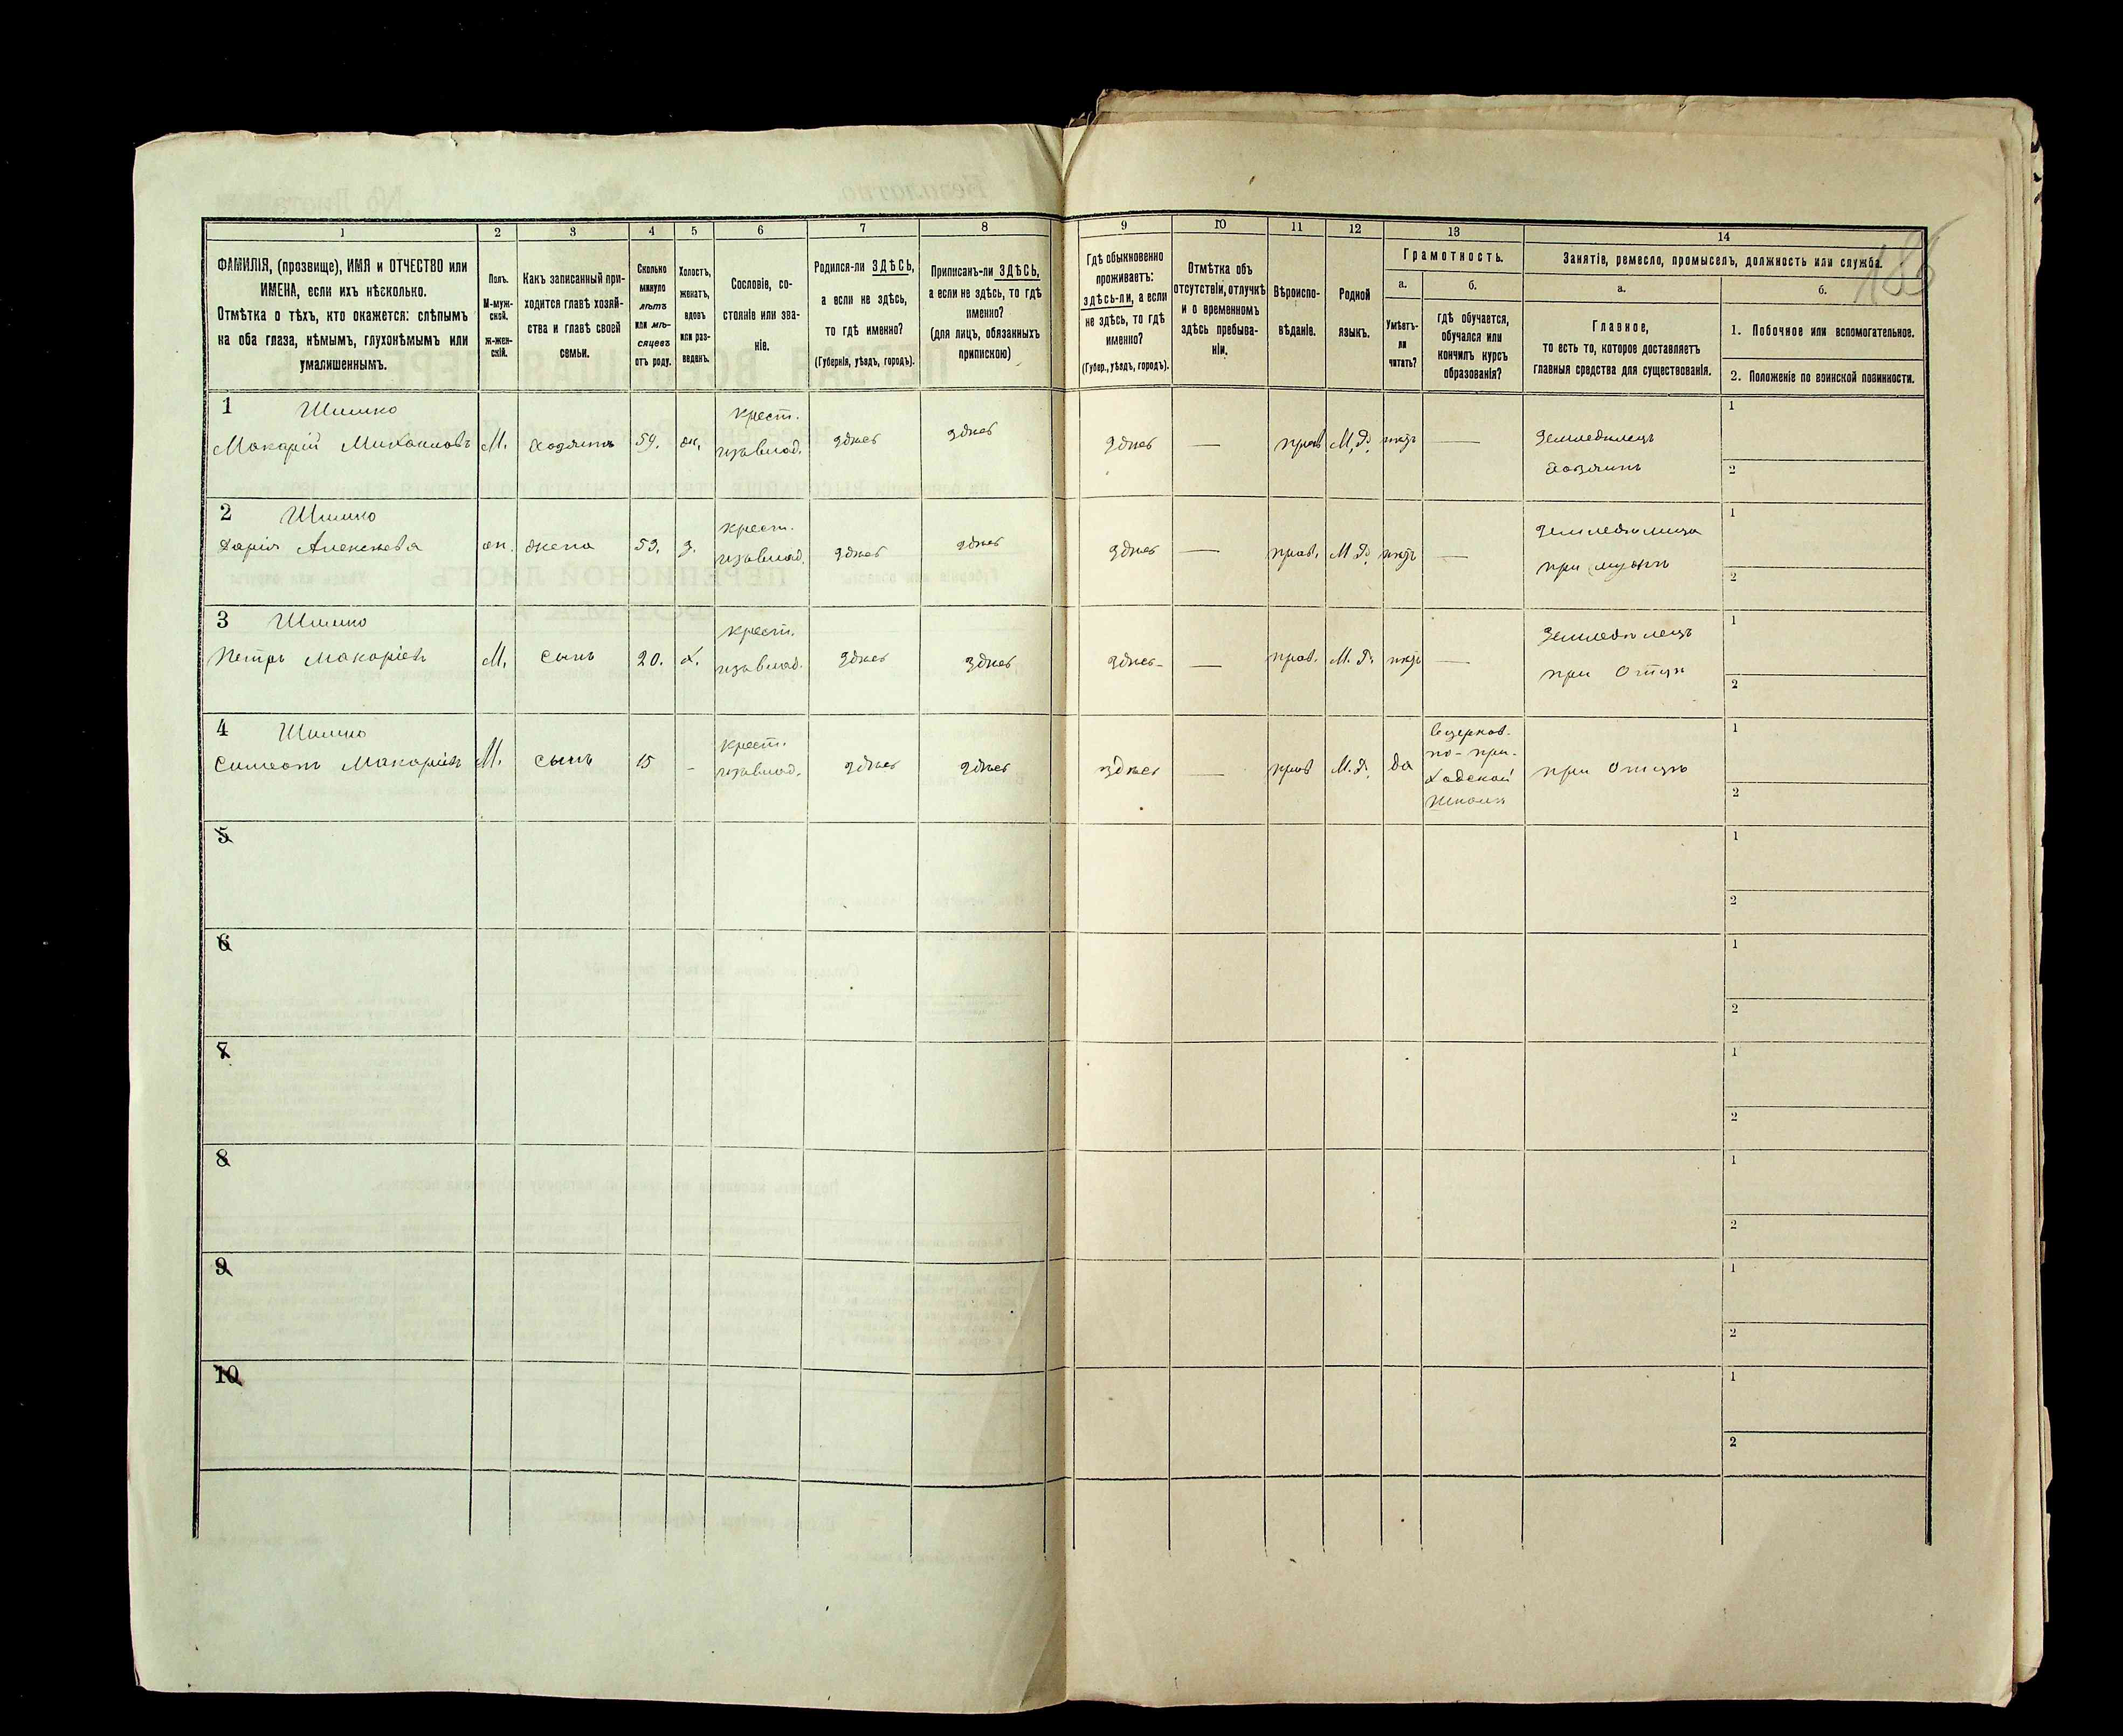 186
1
2
3
4
5
6
7
8
9
10
11
12
13
14
ФАМИЛІЯ, (прозвище), ИМЯ и ОТЧЕСТВО или
ИМЕНА, если ихъ нѣсколько.
Отмѣтка о тѣхъ, кто окажется: слѣпымъ
на оба глаза, нѣмымъ, глухонѣмымъ или
умалишеннымъ.
Полъ.
М-муж-
ской.
ж-жен-
скій.
Какъ записанный при-
ходится главѣ хозяй-
ства и главѣ своей
семьи.
Сколько
минуло
лѣтъ
или мѣ-
сяцевъ
отъ роду.
Холостъ,
женатъ,
вдовъ
или раз-
веденъ.
Сословіе, со-
стояніе или зва-
ніе.
Родился-ли ЗДѢСЬ,
а если не здѣсь,
то гдѣ именно?
(Губернія, уѣздъ, городъ).
Приписанъ-ли ЗДѢСЬ,
а если не здѣсь, то гдѣ
именно?
(для лицъ, обязанныхъ
припискою)
Гдѣ обыкновенно
проживаетъ:
здѣсь-ли, а если
не здѣсь, то гдѣ
именно?
(Губер., уѣздъ, городъ).
Отмѣтка объ
отсутствіи, отлучкѣ
и о временномъ
здѣсь пребыва-
ніи.
Вѣроиспо-
вѣданіе.
Родной
языкъ.
Грамотность.
а.
Умѣетъ-
ли
читать?
б.
гдѣ обучается,
обучался или
кончилъ курсъ
образованія?
Занятіе, ремесло, промыселъ, должность или служба.
а.
Главное,
то есть то, которое доставляетъ
главныя средства для существованія.
б.
1. Побочное или вспомогательное.
2. Положеніе по воинской повинности.
1 Шишко
Макарій Михаиловъ
М.
хозяинъ
59.
ж.
крест.
изъ влад.
здѣсь
здѣсь
здѣсь
—
прав
М. Р.
нѣтъ
—
Земледѣлецъ
хозяинъ
1
2
2 Шишко
Дарія Алексѣева
ж.
жена
53.
з.
крест.
изъ влад.
здѣсь
здѣсь
здѣсь
—
прав.
М. Р.
нѣтъ
—
Земледѣлица
при мужѣ
1
2
3 Шишко
Петръ Макаріевъ
М.
сынъ
20.
х.
крест.
изъ влад.
здѣсь
здѣсь
здѣсь
—
прав.
М. Р.
нѣтъ
—
Земледѣлецъ
при Отцѣ
1
2
4 Шишко
Симеонъ Макаріевъ
М.
сынъ
15
-
крест.
изъ влад.
здѣсь
здѣсь
здѣсь
—
прав
М. Р.
да
въ церков.
но-при-
ходской
школѣ
при Отцѣ
1
2
5
1
2
6
1
2
7
1
2
8
1
2
9
1
2
10
1
2